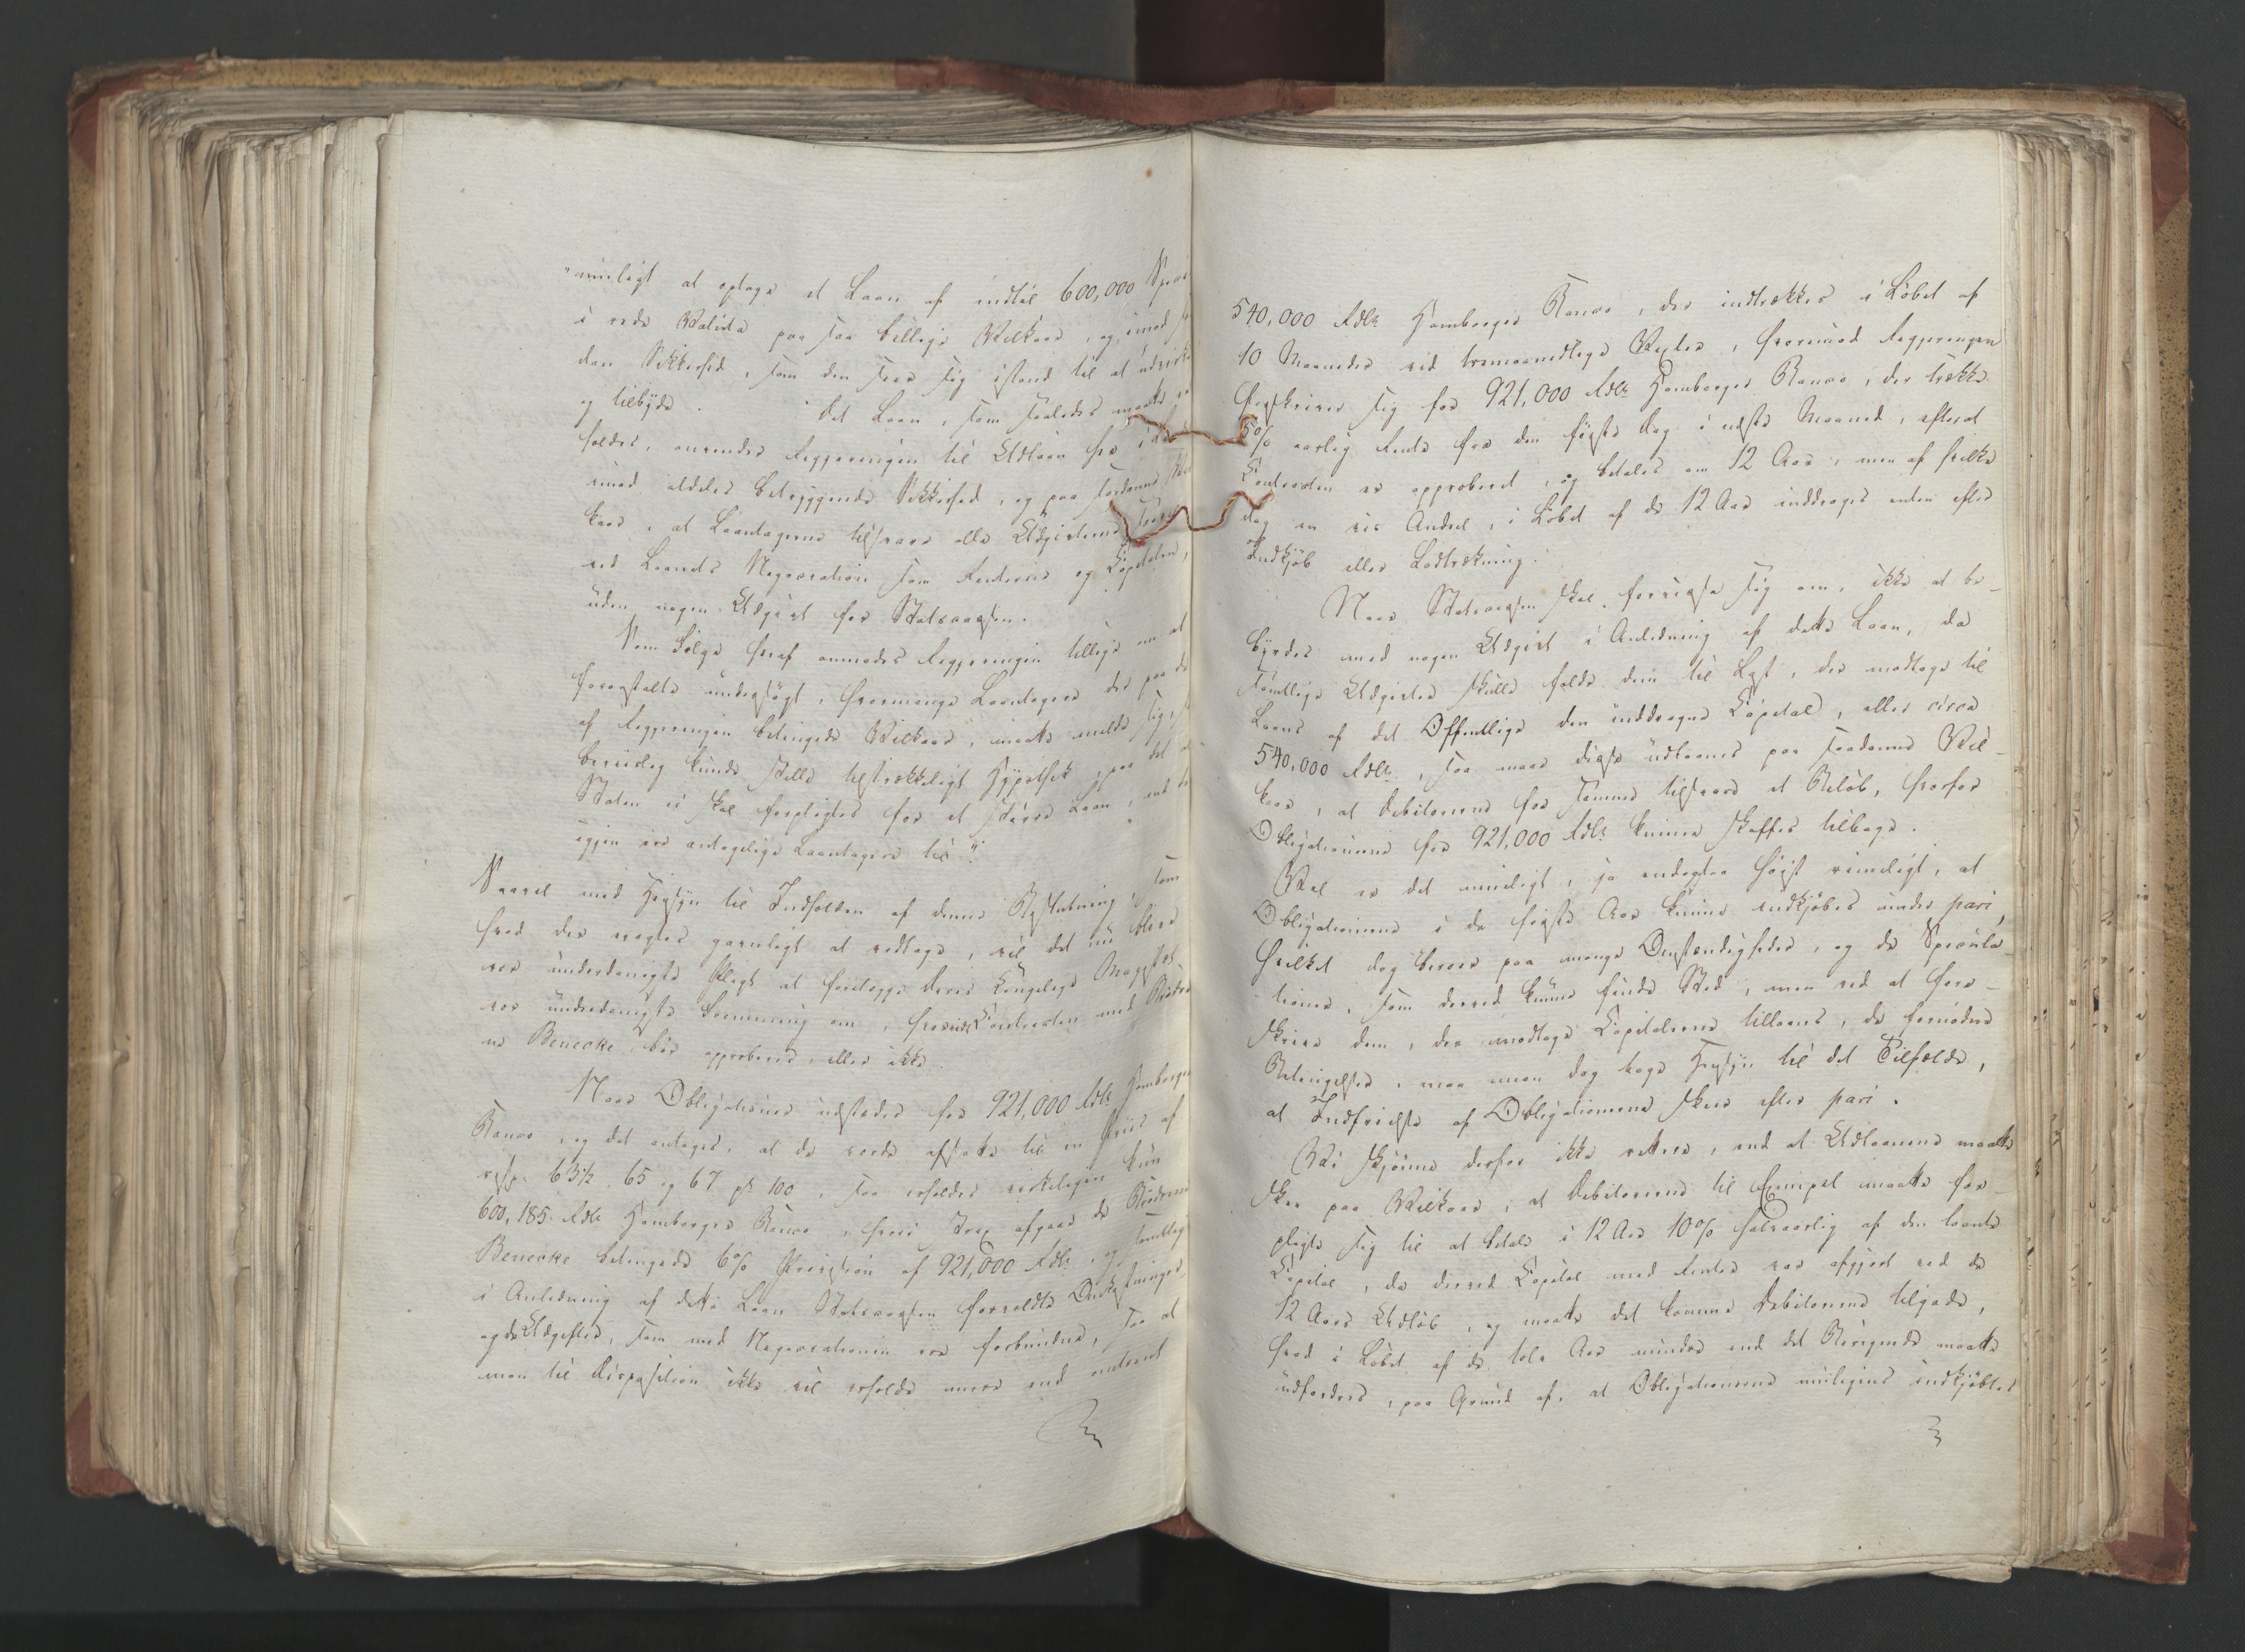 "muligt at optage et Laan af indtil 600,000 Spec
i rede Valuta paa saa billige Vilkaar, og imod saa
dan Sikkerhed, som den seer sig istand til at udvirke
og tilbyde. Det Laan, som saaledes maatte er
holdes, anvender Regjeringen til Udlaan her i
imod aldeles betryggende Sikkerhed, og paa saadanne Vil
kaar, at Laantagerne tilsvare alle Udgifterne saavel
ved Laanets Negociation som Renterne og Capitalen,
uden nogen Udgivt for Statscassen.
Som Følge heraf anmodes Regjeringen tillige om at
foranstalte undersøgt, hvormange Laantagere der paa de
af Regjeringen betingede Vilkaar, maatte melde sig, og
beviislig kunde stille tilstrækkeligt Hypothek, paa det at
Staten ei skal forpligtes for et større Laan, end der
igjen ere antagelige Laantagere til".
Saavel med Hensyn til Indholdet af denne Beslutning, som
hvad der ansees gavnligt at vedtage, vil det nu blive
vor underdanigste Pligt at forelægge Deres Kongelige Majestæt
vor underdanigste Formening om, hvorvidt Contracten med Brødre
ne Benecke bør approberes, eller ikke.
Naar Obligationer udstædes for 921,000 Rdlr Hamborger
Banco, og det antages, at de vorde afsatte til en Priis af
resp: 63½, 65 og 67 pCt 100, saa erholdes virkeligen kun
600,185 Rdlr Hamborger Banco, hvori dog afgaar de Brødrene
Benecke betingede 6% Provision af 921,000 Rdlr, og samtlige
i Anledning af dette Laan Statscassen forvoldte Omkostninger
og de Udgifter, som med Negociationen ere forbundne, saa at
man til Disposition ikke vil erholde mere end omtrent
540,000 Rdlr Hamborger Banco, der indtrækkes i Løbet af
10 Maaneder ved tremaanedlige Vexler, hvorimod Regjeringen
forskriver sig for 921,000 Rdlr Hamborger Banco, der trække
5% aarlig Rente fra den første Dag i næste Maaned, efterat
Contracten er approberet, og betales om 12 Aar, men af hvilke
dog en vis Andeel, i Løbet af de 12 Aar inddrages enten efter
Indkjøb eller Lodtrækning.
Naar Statscassen skal forvisse sig om, ikke at be-
byrdes med nogen Udgivt i Anledning af dette Laan, da
samtlige Udgivter skulle falde dem til Last, der modtage til
Laans af det Offentlige den inddragne Capital, eller circa
540,000 Rdlr, saa maae disse udlaanes paa saadanne Vil-
kaar, at Debitorerne for samme tilsvare et Beløb, hvorfor
Obligationerne for 921,000 Rdlr kunne skaffes tilbage.
Vel er det muligt, ja endogsaa høist rimeligt, at
Obligationerne i de første Aar kunne indkjøbes under pari,
hvilket dog beroer paa mange Omstændigheder, og de Specula-
tioner, som derved kunne finde Sted, men ved at fore-
skrive dem, der modtage Capitalerne tillaans, de fornødne
Betingelser, maa man dog tage Hensyn til det Tilfælde,
at Indfrielse af Obligationerne skeer efter pari.
Vi skjønne derfor ikke rettere, end at Udlaanene maatte
skee paa Vilkaar, at Debitorerne til Exempel maatte for-
pligte sig til at betale i 12 Aar 10% halvaarlig af den laante
Capital, da derved Capital med Renter var afgjort ved de
12 Aars Udløb, og maatte det komme Debitorerne tilgode,
hvad i Løbet af de tolv Aar mindre end det Beregnede maatte
udfordres, paa Grund af, at Obligationerne muligens indkjøbtes